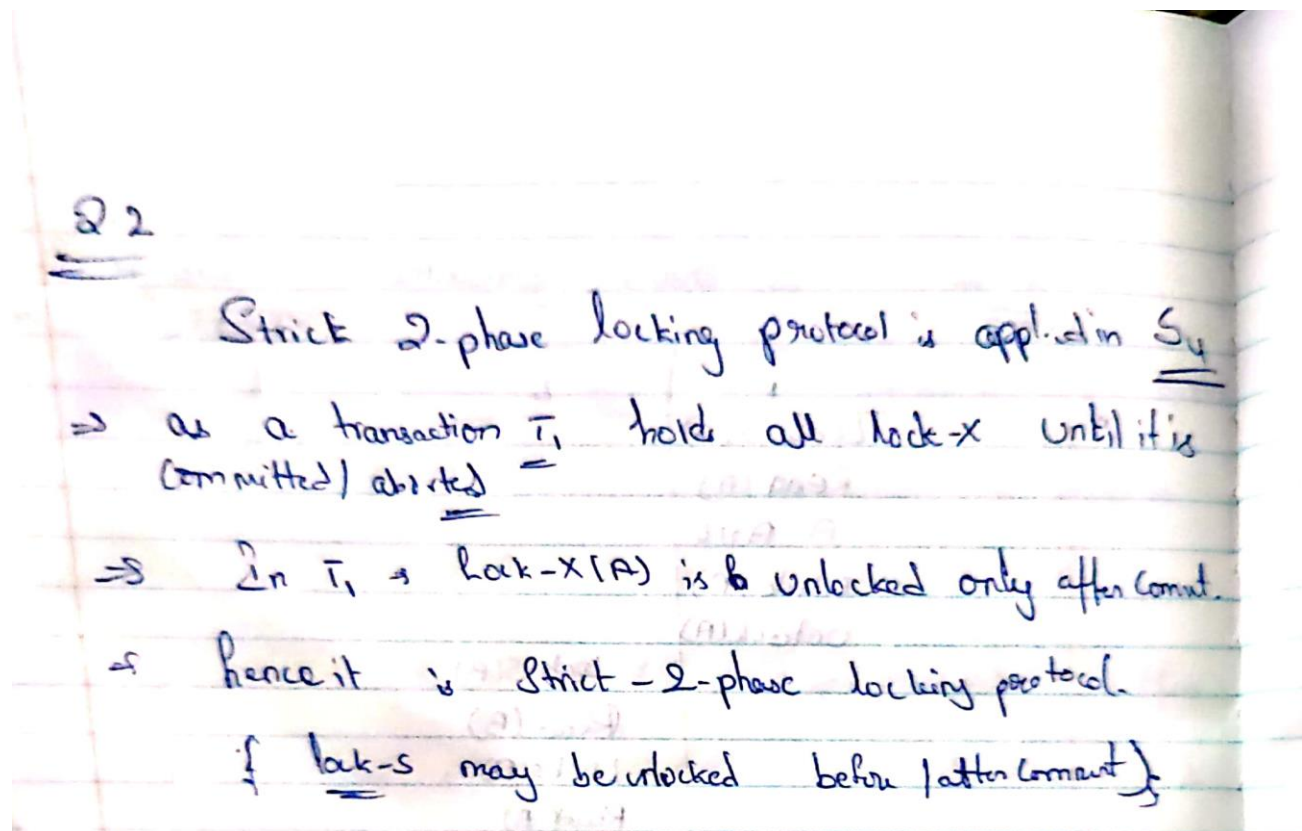 Q 2
Strict 2-phase locking protocol is applied in S4
⇒ as a transaction T1 holds all lock-X until it is
committed / aborted
⇒ In T1 → Lock-X(A) is unlocked only after commit.
⇒ hence it is Strict - 2-phase locking protocol.
{ lock-S may be unlocked before / after commit }